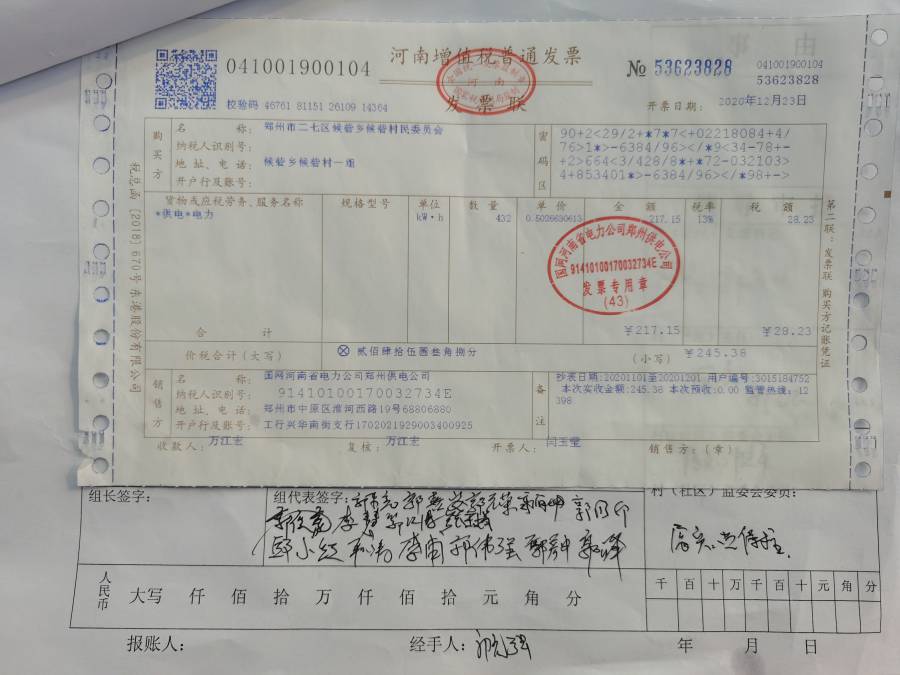 由
041001900104
河南增值税普通发票
发票联
河南
№ 53623828
041001900104
53623828
校验码 46761 81151 26109 14364
开票日期: 2020年12月23日
购买方
名称: 郑州市二七区候砦乡候砦村民委员会
纳税人识别号:
地址、电话: 候砦乡候砦村一组
开户行及账号:
密码区
90+2<29/2+*7*7<+02218084+4/
76>1*>-6384/96></*9<34-78+-
+2>664<3/428/8*+*72-032103>
4+853401*>-6384/96></*98+->
货物或应税劳务、服务名称 规格型号 单位 数量 单价 金额 税率 税额
*供电*电力 kW·h 432 0.5026630613 217.15 13% 28.23
国网河南省电力公司郑州供电公司
91410100170032734E
发票专用章
(43)
合计 ¥217.15 ¥28.23
价税合计(大写) ⊗ 贰佰肆拾伍圆叁角捌分 (小写) ¥245.38
销售方
名称: 国网河南省电力公司郑州供电公司
纳税人识别号: 91410100170032734E
地址、电话: 郑州市中原区淮河西路19号68806880
开户行及账号: 工行兴华南街支行1702021929003400925
备注
抄表日期:20201101至20201201 用户编号:3015184752
本次实收金额:245.38 本次预收:0.00 监管热线:12
398
收款人: 万江宏 复核: 万江宏 开票人: 闫玉莹 销售方:(章)
税总函[2018]670号 东港股份有限公司
第二联:发票联 购买方记账凭证
组长签字: 组代表签字: 村(社区)监委会委员:
人民币
大写 仟 佰 拾 万 仟 佰 拾 元 角 分
千 百 十 万 千 百 十 元 角 分
报账人: 经手人: 年 月 日